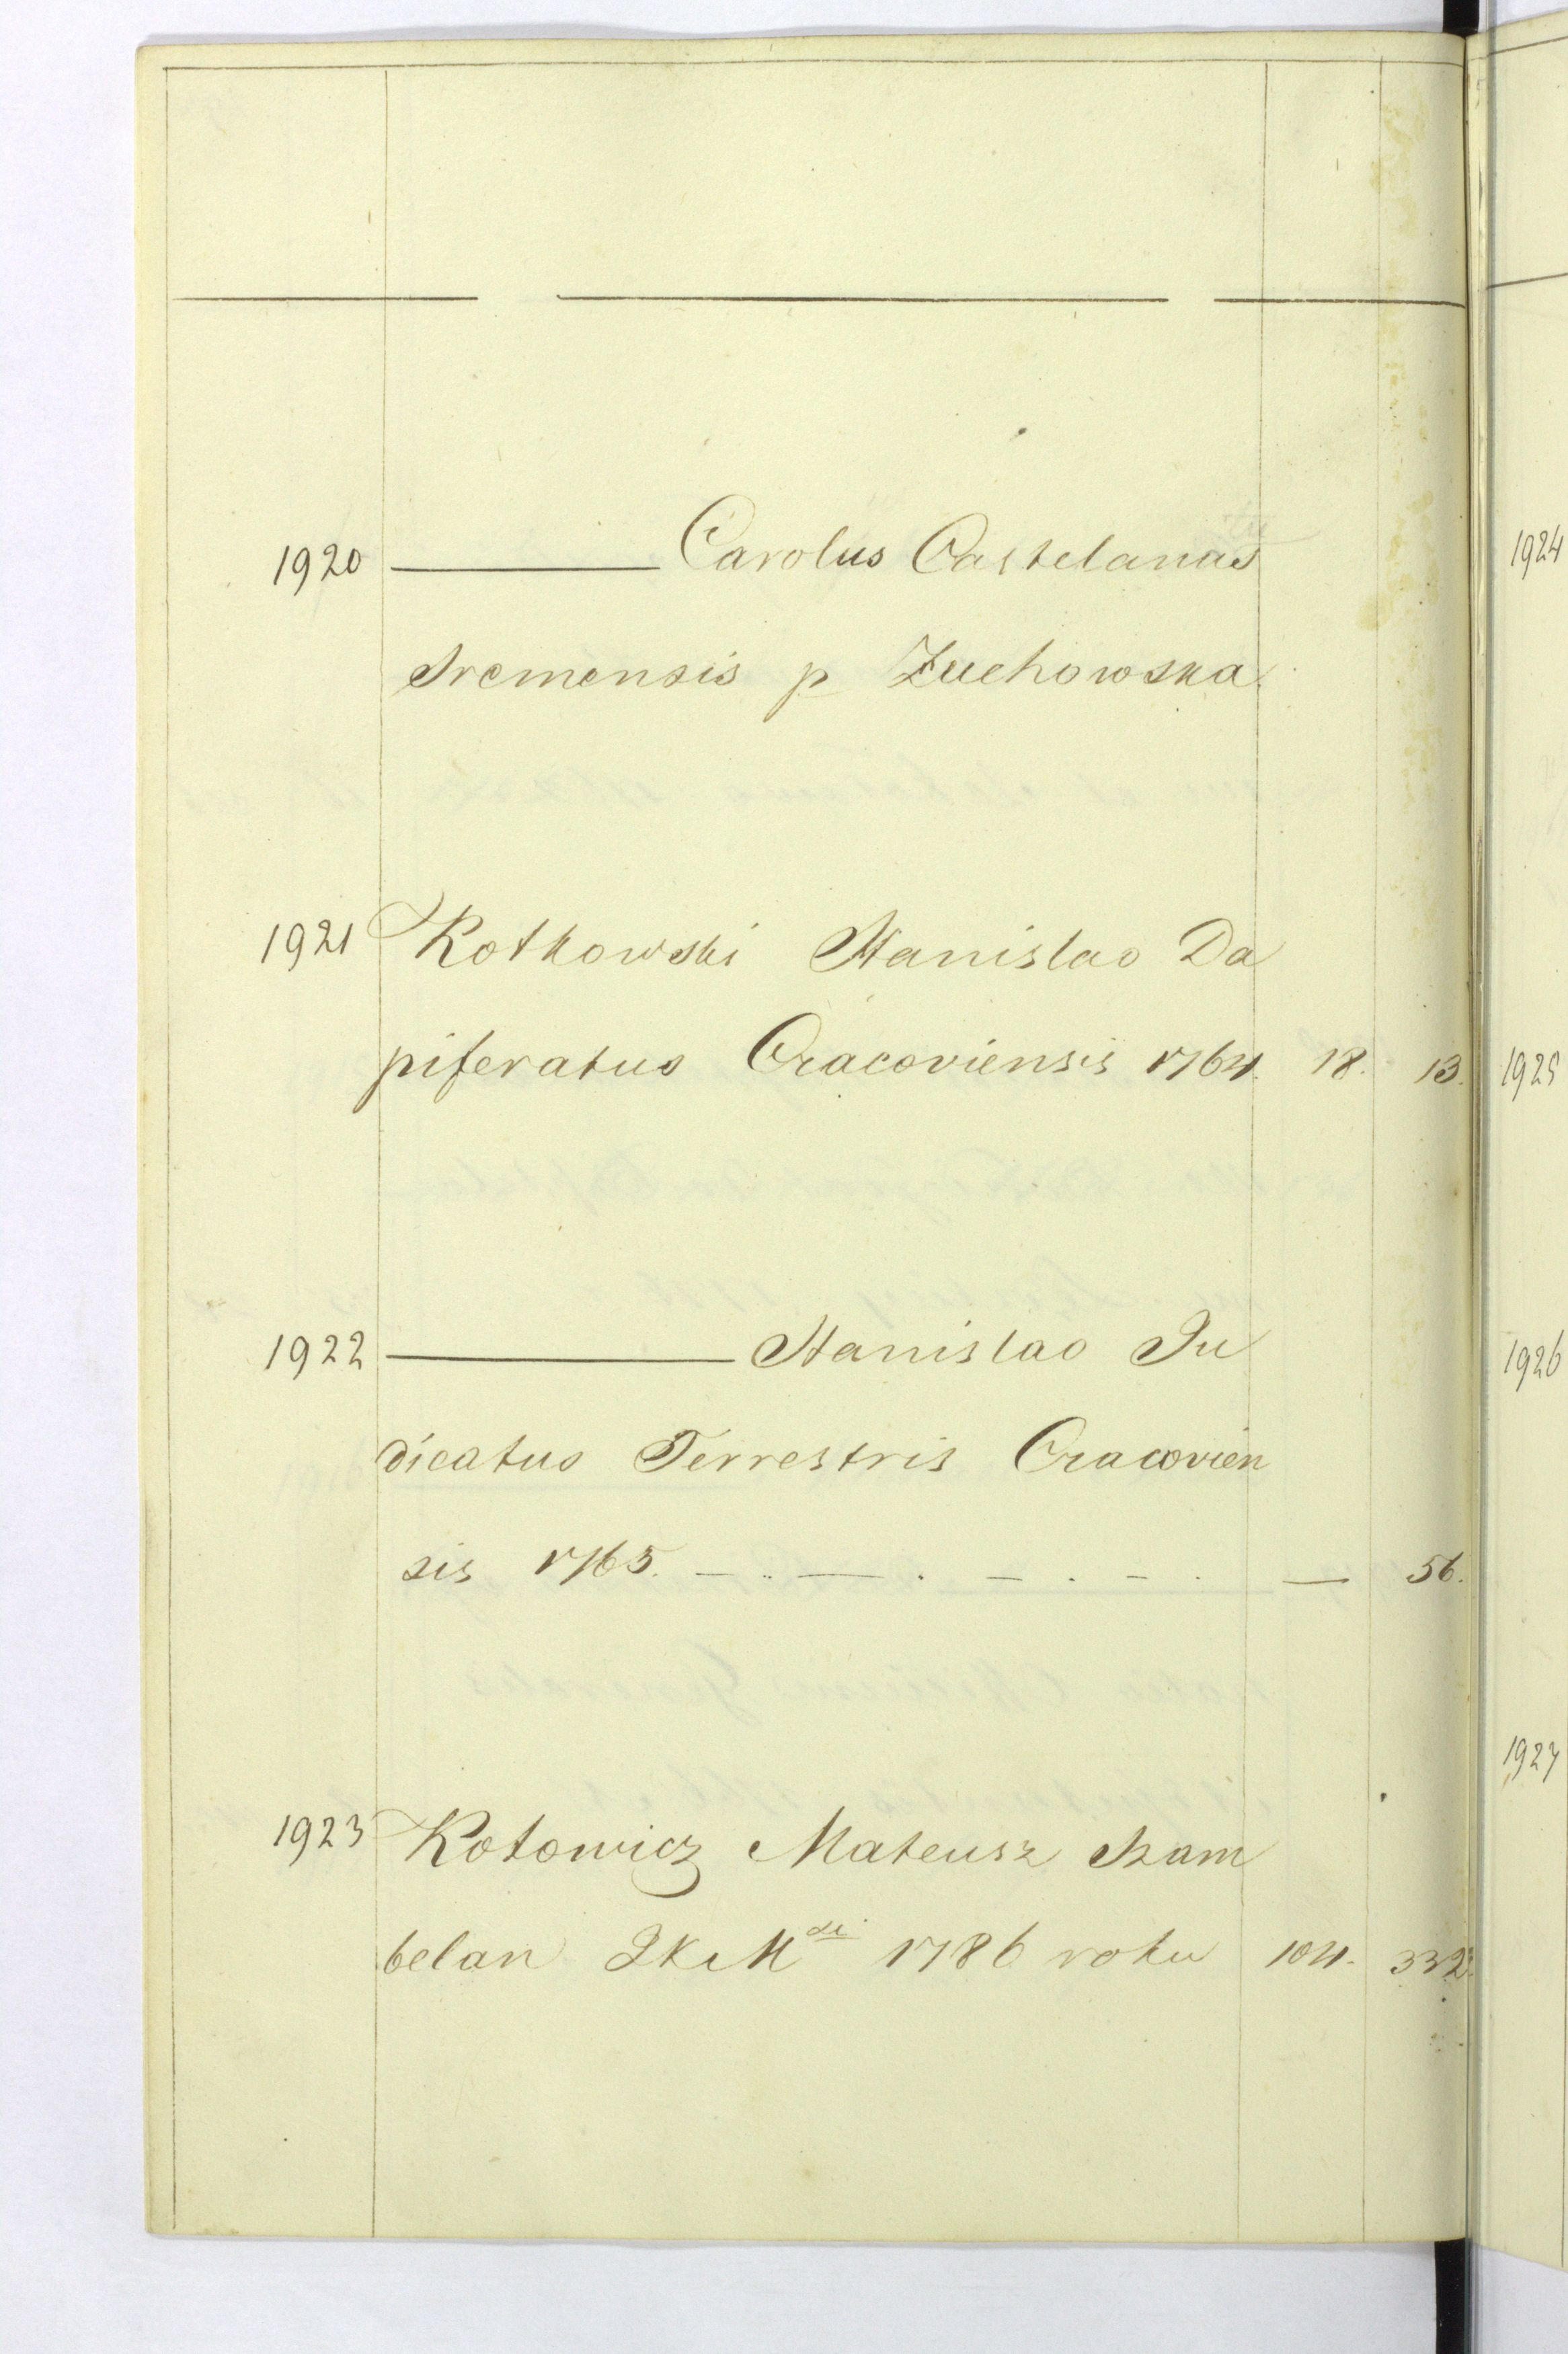 1920 ——— Carolus Castelanus
Sremensis p Zuchowska.
1921 Kotkowski Stanislao Da
piferatus Cracoviensis 1764. 18. 13.
1922 ——— Stanislao Ju
dicatus Terrestris Cracovien
sis 1765. — .. — . — . - . — 56.
1923 Kotowicz Mateusz Szam
belan JKM 1786 roku 104. 332.
1924
1925
1926
1927